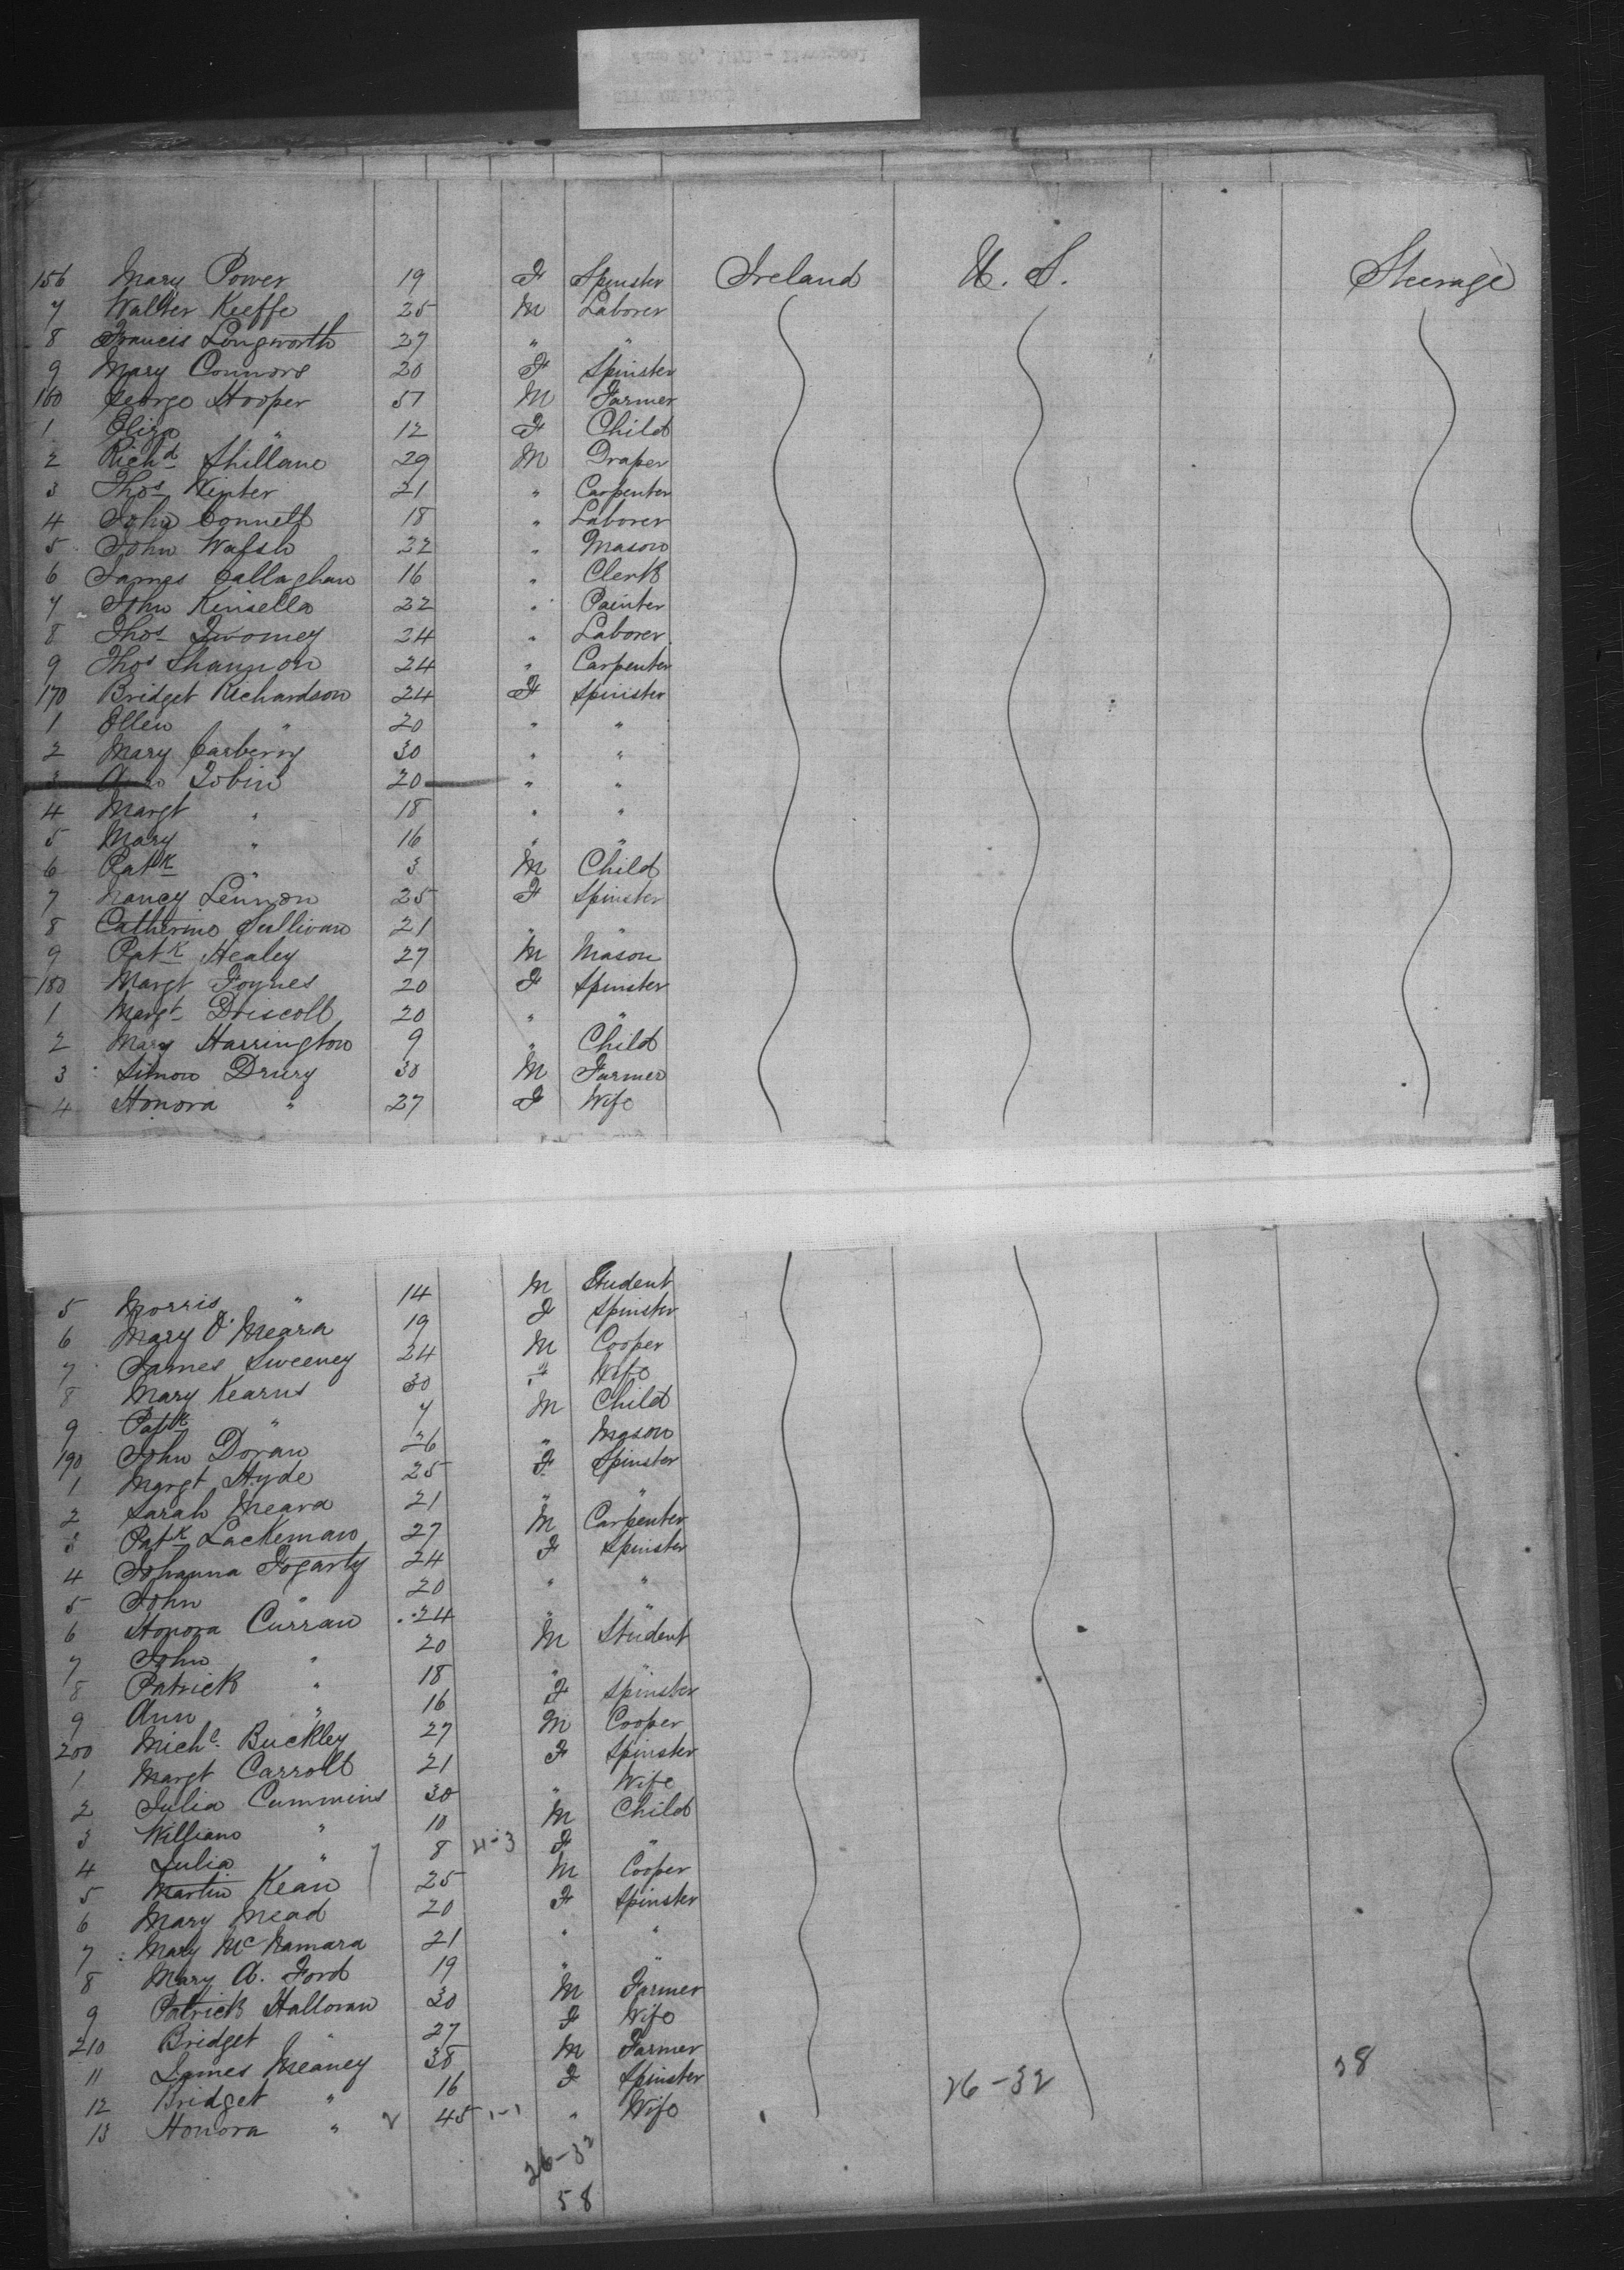 156 Mary Power 19 F Spinster Ireland U. S. Steerage
7 Walter Keeffe 25 M Laborer
8 Francis Longworth 27 " "
9 Mary Connors 20 F Spinster
160 George Hooper 57 M Farmer
1 Eliza " 12 F Child
2 Richd Shillane 29 M Draper
3 Thos Winter 21 " Carpenter
4 John Connell 18 " Laborer
5 John Walsh 22 " Mason
6 James Callaghan 16 " Clerk
7 John Kinsella 22 " Painter
8 Thos Twomey 24 " Laborer
9 Thos Shannon 24 " Carpenter
170 Bridget Richardson 24 F Spinster
1 Ellen " 20 " "
2 Mary Carberry 30 " "
3 Tobin 20 " "
4 Margt " 18 " "
5 Mary " 16 " "
6 Patk " 3 M Child
7 Nancy Lennon 25 F Spinster
8 Catherine Sullivan 21 " "
9 Patk Healey 27 M Mason
180 Margt Foynes 20 F Spinster
1 Margt Driscoll 20 " "
2 Mary Harrington 9 " Child
3 Simon Drury 30 M Farmer
4 Honora " 27 F Wife
5 Morris " 14 M Student
6 Mary O'Meara 19 F Spinster
7 James Sweeney 24 M Cooper
8 Mary Kearns 30 F Wife
9 Patk " 7 M Child
190 John Doran 26 " Mason
1 Margt Hyde 25 F Spinster
2 Sarah Meara 21 " "
3 Patk Lackeman 27 M Carpenter
4 Johanna Fogarty 24 F Spinster
5 John " 20 " "
6 Honora Curran 24 " "
7 John " 20 M Student
8 Patrick " 18 " "
9 Ann " 16 F Spinster
200 Michl Buckley 27 M Cooper
1 Margt Carroll 21 F Spinster
2 Julia Cummins 30 " Wife
3 William " 10 M Child
4 Julia " 8 F "
5 Martin Kean 25 M Cooper
6 Mary Mead 20 F Spinster
7 Mary McNamara 21 " "
8 Mary A. Ford 19 " "
9 Patrick Halloran 30 M Farmer
210 Bridget " 27 F Wife
11 James Meaney 38 M Farmer
12 Bridget " 16 F Spinster
13 Honora " 45 1-1 " Wife
26-32 26-32 58
58